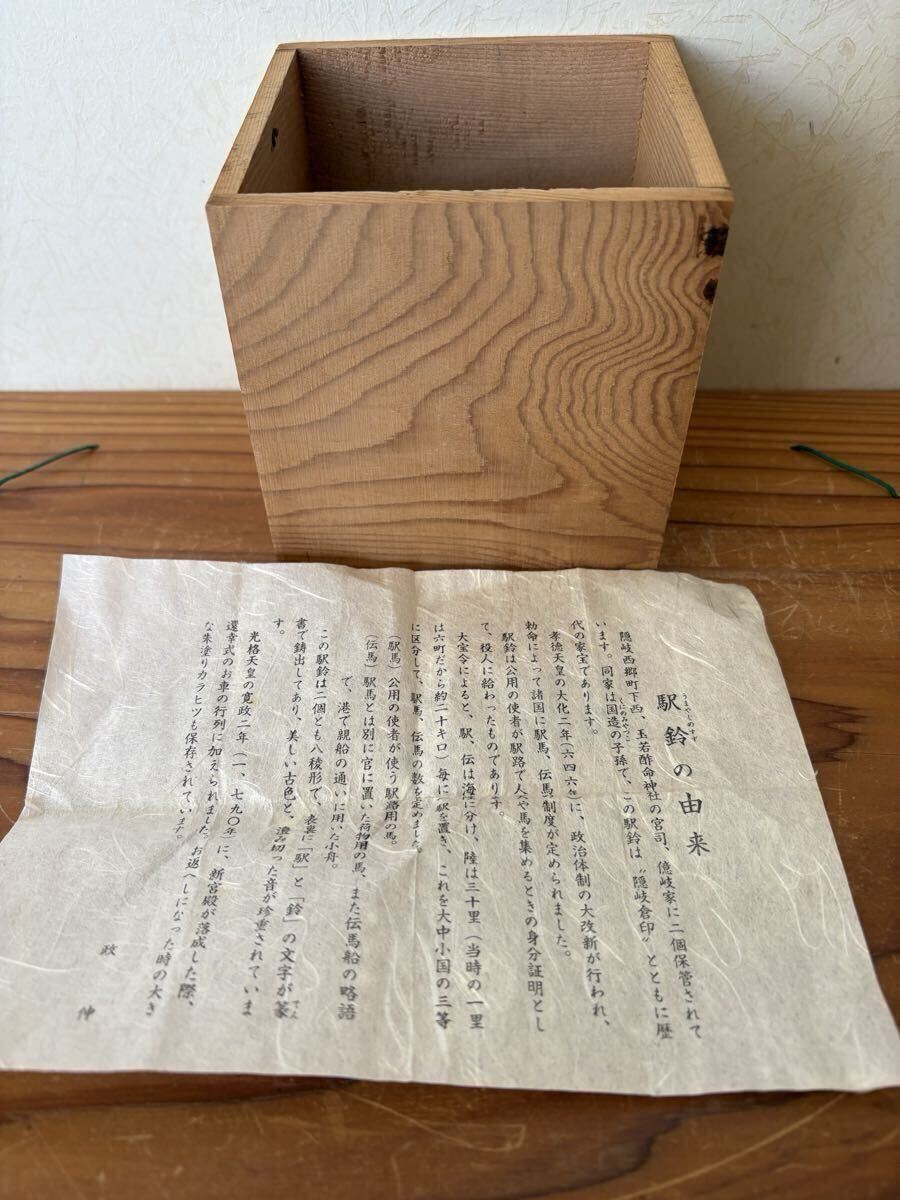 うまやじのすず
駅鈴の由来
隠岐西郷町下西、玉若酢命神社の宮司、億岐家に二個保管されて
います。同家は国造の子孫で、この駅鈴は〝隠岐倉印〟とともに歴
くにのみやつこ
代の家宝であります。
孝徳天皇の大化二年(六四六年)に、政治体制の大改新が行われ、
勅命によって諸国に駅馬、伝馬制度が定められました。
駅鈴は公用の使者が駅路で人や馬を集めるときの身分証明とし
て、役人に給わったものであります。
大宝令によると、駅、伝は海陸に分け、陸は三十里(当時の一里
は六町だから約二十キロ)毎に駅を置き、これを大中小国の三等
に区分して、駅馬、伝馬の数を定めました。
(駅馬)公用の使者が使う駅路用の馬。
(伝馬)駅馬とは別に官に置いた荷物用の馬、また伝馬船の略語
で、港で親船の通いに用いた小舟。
この駅鈴は二個とも八稜形で、表裏に「駅」と「鈴」の文字が篆
てん
書で鋳出してあり、美しい古色と、澄み切った音が珍重されていま
す。
光格天皇の寛政二年(一、七九〇年)に、新宮殿が落成した際、
還幸式のお車の行列に加えられました。お返へしになった時の大き
な朱塗りカラヒツも保存されています。
政
伸